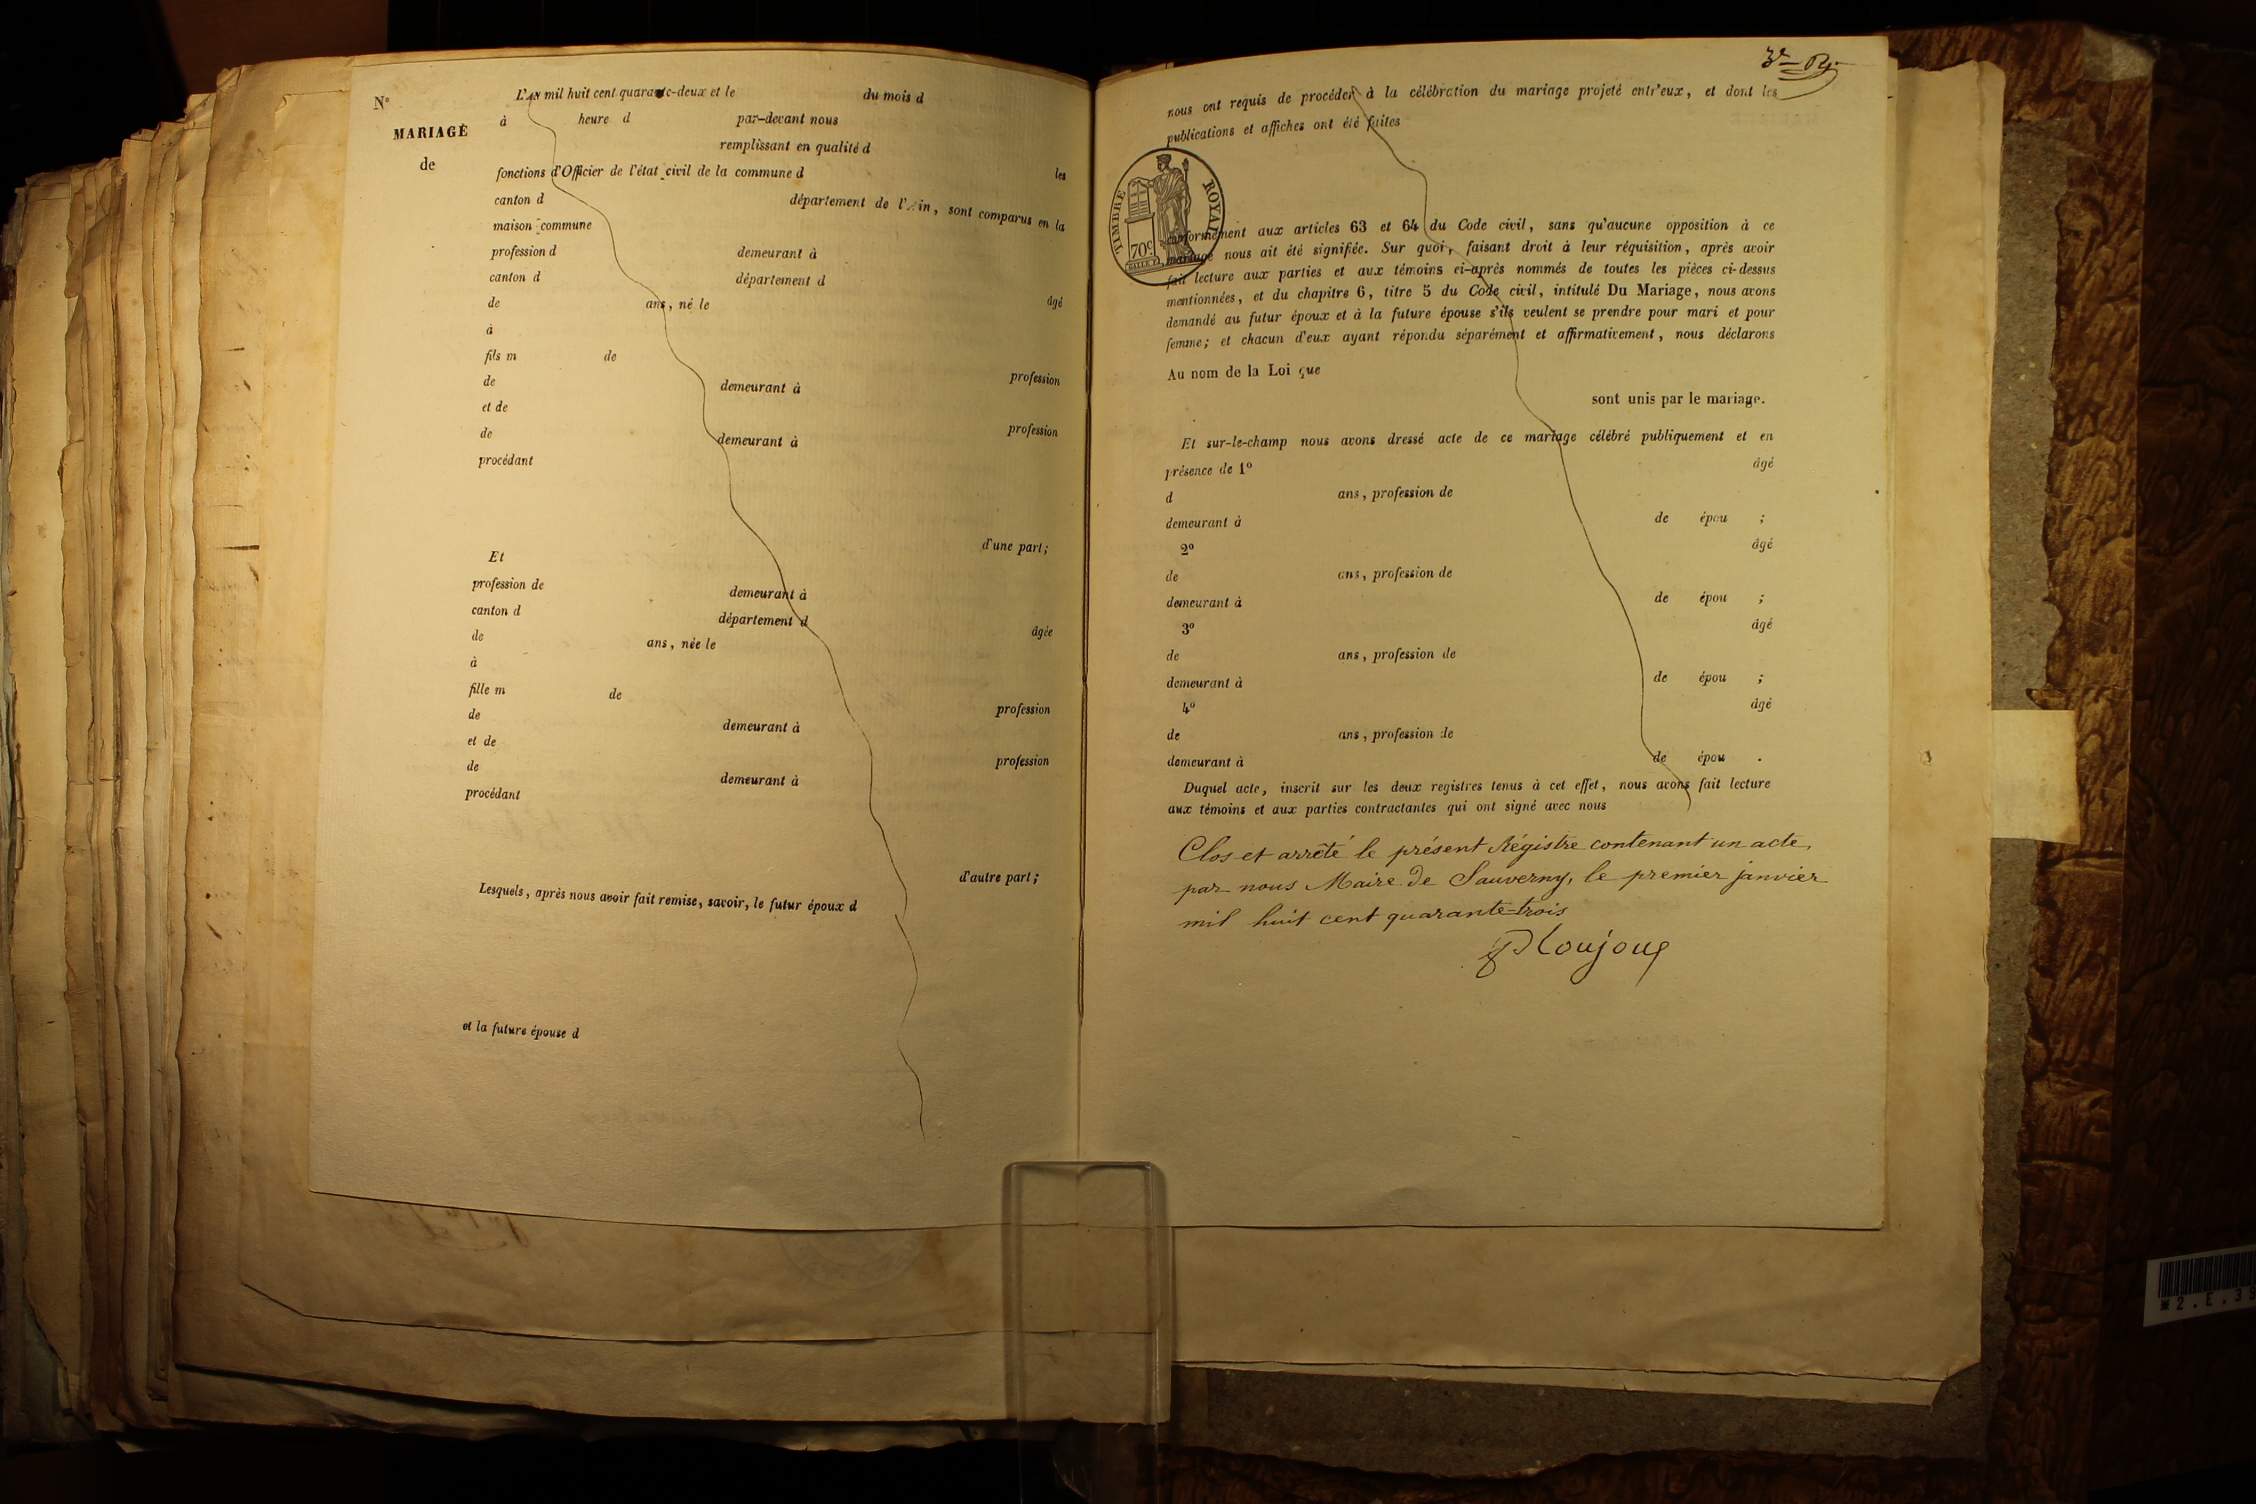 N°
MARIAGE
de
L'AN mil huit cent quarante-deux et le du mois d
à heure d par-devant nous
remplissant en qualité d
fonctions d'Officier de l'état civil de la commune d les
canton d département de l'Ain, sont comparus en la
maison commune
profession d demeurant à
canton d département d
de ans, né le âgé
à
fils m de
de demeurant à profession
et de
de demeurant à profession
procédant
d'une part;
Et
profession de demeurant à
canton d département d
de ans, née le âgée
à
fille m de
de demeurant à profession
et de
de demeurant à profession
procédant
d'autre part;
Lesquels, après nous avoir fait remise, savoir, le futur époux d
et la future épouse d
nous ont requis de procéder à la célébration du mariage projeté entr'eux, et dont les
publications et affiches ont été faites
TIMBRE ROYAL
70c.
conformément aux articles 63 et 64 du Code civil, sans qu'aucune opposition à ce
mariage nous ait été signifiée. Sur quoi, faisant droit à leur réquisition, après avoir
fait lecture aux parties et aux témoins ci-après nommés de toutes les pièces ci-dessus
mentionnées, et du chapitre 6, titre 5 du Code civil, intitulé Du Mariage, nous avons
demandé au futur époux et à la future épouse s'ils veulent se prendre pour mari et pour
femme; et chacun d'eux ayant répondu séparément et affirmativement, nous déclarons
Au nom de la Loi que
sont unis par le mariage.
Et sur-le-champ nous avons dressé acte de ce mariage célébré publiquement et en
présence de 1° âgé
d ans, profession de
demeurant à de épou ;
2° âgé
de ans, profession de
demeurant à de épou ;
3° âgé
de ans, profession de
demeurant à de épou ;
4° âgé
de ans, profession de
demeurant à de épou .
Duquel acte, inscrit sur les deux registres tenus à cet effet, nous avons fait lecture
aux témoins et aux parties contractantes qui ont signé avec nous
Clos et arrêté le présent Régistre contenant un acte,
par nous Maire de Sauverny, le premier janvier
mil huit cent quarante-trois
*2.E.39